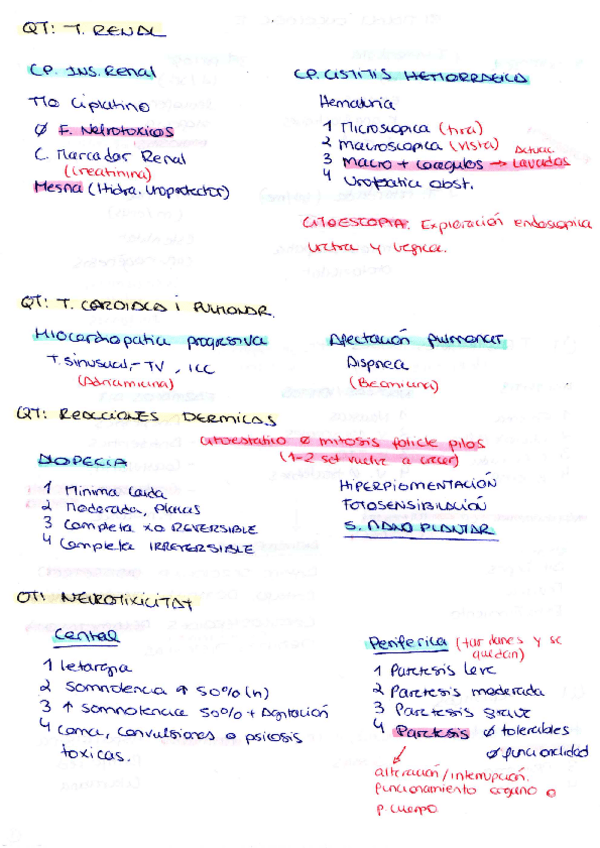 QT: T. RENAL
CP. INS. Renal
Tto Ciplatino
Ø F. Nefrotoxicos
C. Marcador Renal
(creatinina)
Mesna (Hidra. Uroprotector)
CP. CISTITIS HEMORRAGICA
Hematuria
1 Microscopica (tira)
2 Macroscopica (vista)
3 Macro + coagulos → Lavados
4 Uropatia obst.
CITOESTOPIA. Exploración endoscopica
uretra y vegiga.
QT: T. CARDIACA i PULMONAR.
Miocardiopatia progresiva
T. sinusual, - TV, ICC
(Adriamicina)
Afectación pulmonar
Dispnea
(Beomicina)
QT: REACCIONES DERMICAS
citoestatico Ø mitosis folicle pilos
(1-2 set vuelve a crecer)
ALOPECIA
1 Minima caida
2 Moderada, placas
3 Completa xo REVERSIBLE
4 Completa IRREVERSIBLE
HIPERPIGMENTACIÓN
FOTOSENSIBILIACIÓN
S. MANO PLANTAR
QT: NEUROTIXICITAT
Central
1 letargia
2 Somnolencia ↑ 50% (h)
3 ↑ Somnolencia 50% + Agitación
4 Coma, convulsiones o psicosis
toxicas.
Periferica (tardanes y se
quedan)
1 Partesis leve
2 Partesis moderada
3 Partesis greave
4 Partesis Ø tolerables
Ø funcionalidad
alteración/interrupción.
funcionamiento organo o
p. cuerpo